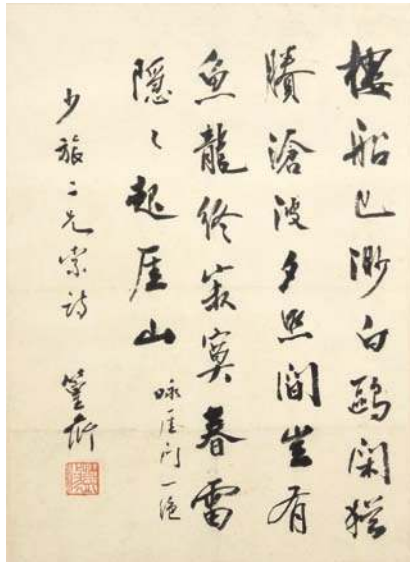 樓船已渺白鷗閑猶
賸滄波夕照間豈有
魚龍終寂寞春雷
隱々起厓山
詠厓門一絕
少旅二兄索詩